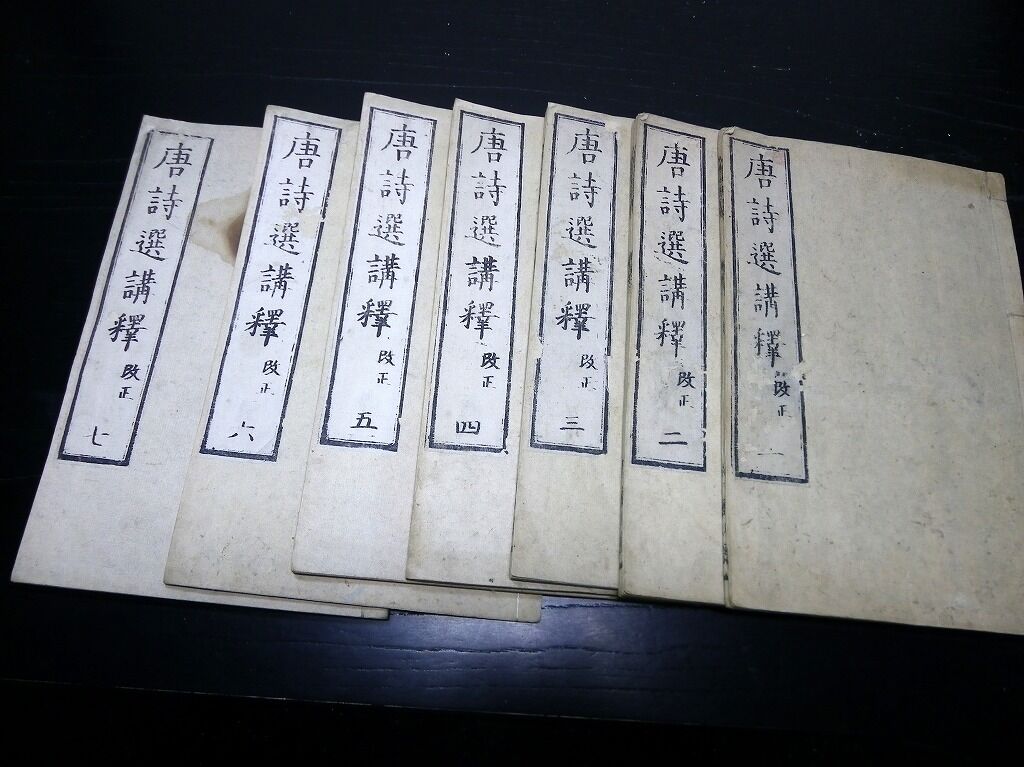 唐詩選講釋 改正 一
唐詩選講釋 改正 二
唐詩選講釋 改正 三
唐詩選講釋 改正 四
唐詩選講釋 改正 五
唐詩選講釋 改正 六
唐詩選講釋 改正 七